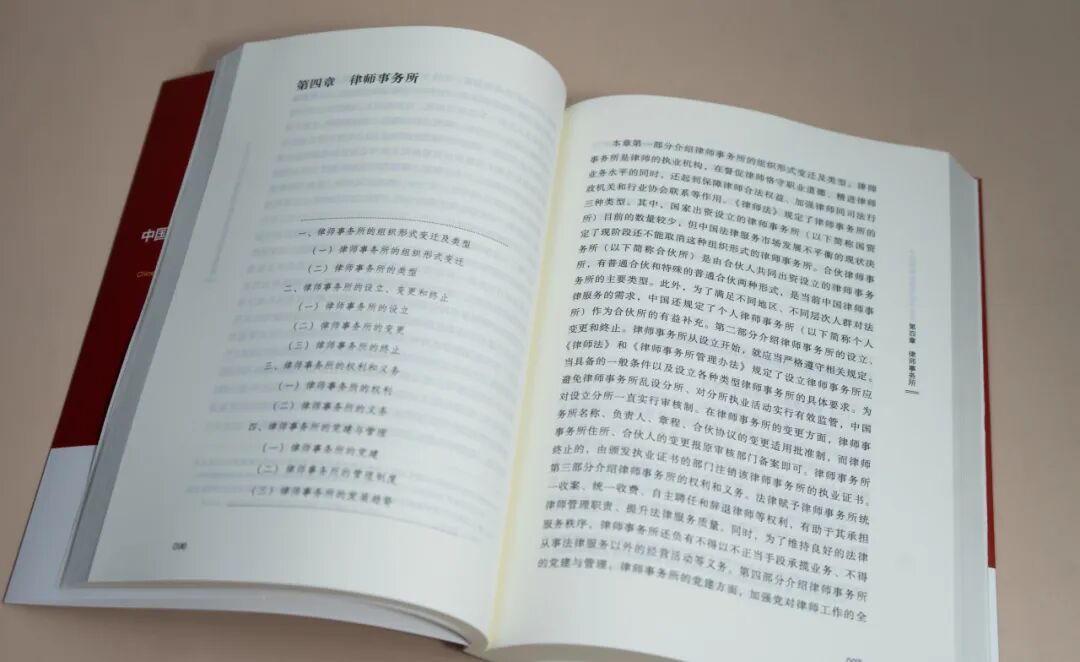 中国
第四章 律师事务所
一、律师事务所的组织形式变迁及类型
（一）律师事务所的组织形式变迁
（二）律师事务所的类型
二、律师事务所的设立、变更和终止
（一）律师事务所的设立
（二）律师事务所的变更
（三）律师事务所的终止
三、律师事务所的权利和义务
（一）律师事务所的权利
（二）律师事务所的义务
四、律师事务所的党建与管理
（一）律师事务所的党建
（二）律师事务所的管理制度
（三）律师事务所的发展趋势
本章第一部分介绍律师事务所的组织形式变迁及类型。律师
事务所是律师的执业机构，在督促律师恪守职业道德、精进律师
业务水平的同时，还起到保障律师合法权益、加强律师同司法行
政机关和行业协会联系等作用。《律师法》规定了律师事务所的
三种类型。其中，国家出资设立的律师事务所（以下简称国资
所）目前的数量较少，但中国法律服务市场发展不平衡的现状决
定了现阶段还不能取消这种组织形式的律师事务所。合伙律师事
务所（以下简称合伙所）是由合伙人共同出资设立的律师事务
所，有普通合伙和特殊的普通合伙两种形式，是当前中国律师事
务所的主要类型。此外，为了满足不同地区、不同层次人群对法
律服务的需求，中国还规定了个人律师事务所（以下简称个人
所）作为合伙所的有益补充。第二部分介绍律师事务所的设立、
变更和终止。律师事务所从设立开始，就应当严格遵守相关规定。
《律师法》和《律师事务所管理办法》规定了设立律师事务所应
当具备的一般条件以及设立各种类型律师事务所的具体要求。为
避免律师事务所乱设分所、对分所执业活动实行有效监管，中国
对设立分所一直实行审核制。在律师事务所的变更方面，律师事
务所名称、负责人、章程、合伙协议的变更适用批准制，而律师
事务所住所、合伙人的变更报原审核部门备案即可。律师事务所
终止的，由颁发执业证书的部门注销该律师事务所的执业证书。
第三部分介绍律师事务所的权利和义务。法律赋予律师事务所统
一收案、统一收费、自主聘任和辞退律师等权利，有助于其承担
律师管理职责、提升法律服务质量。同时，为了维持良好的法律
服务秩序，律师事务所还负有不得以不正当手段承揽业务、不得
从事法律服务以外的经营活动等义务。第四部分介绍律师事务所
的党建与管理。律师事务所的党建方面，加强党对律师工作的全
第四章 律师事务所